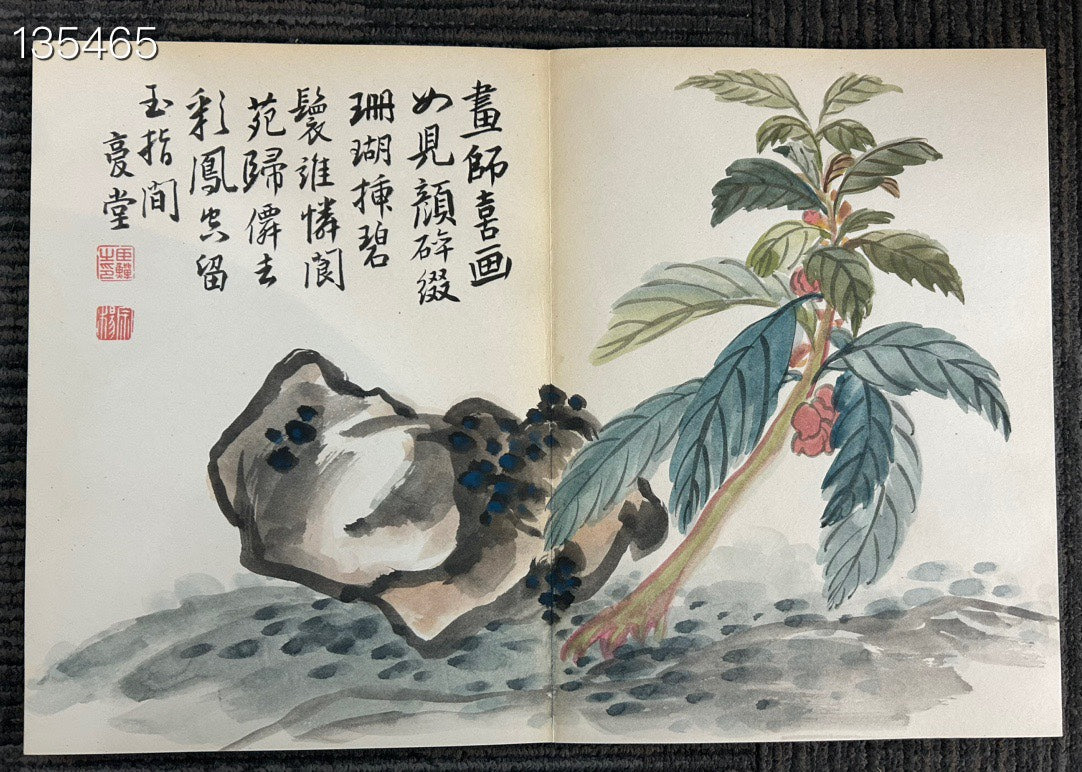 135465
畫師喜画
如見顔碎綴
珊瑚揷碧
鬟誰憐閬
苑歸僊去
彩鳳空留
玉指間
亭堂